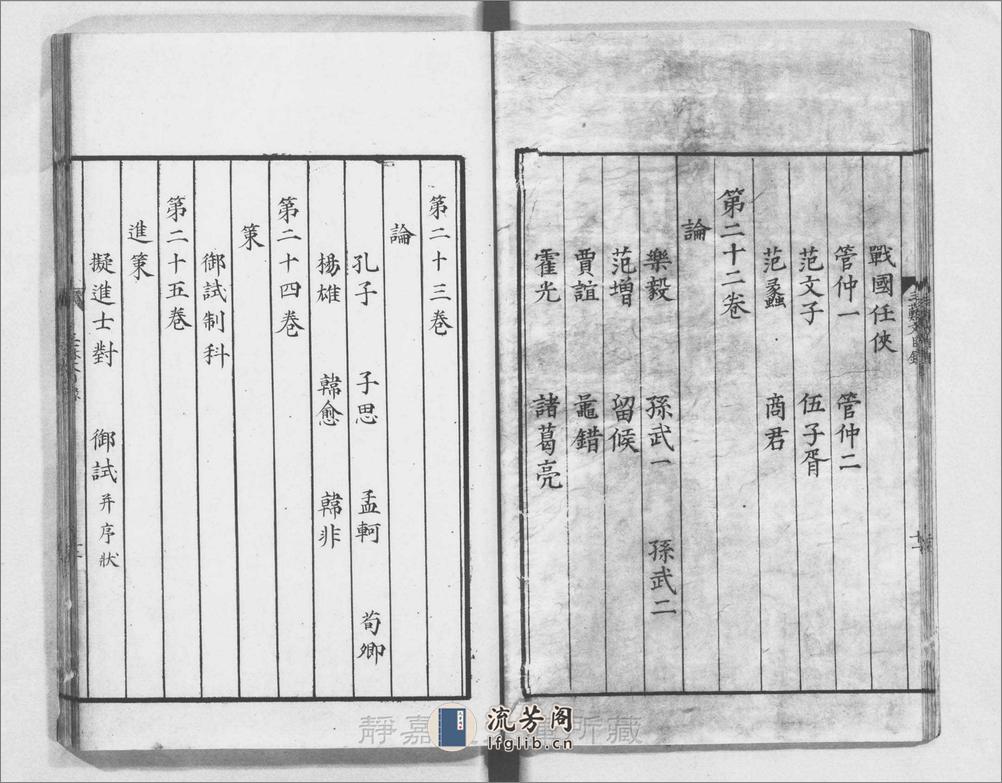 戰國任俠
管仲一 管仲二
范文子 伍子胥
范蠡 商君
第二十二卷
論
樂毅 孫武一 孫武二
范增 留候
賈誼 鼂錯
霍光 諸葛亮
第二十三卷
論
孔子 子思 孟軻 荀卿
楊雄 韓愈 韓非
第二十四卷
策
御試制科
第二十五卷
進策
擬進士對 御試并序狀
靜嘉 所藏
流芳阁
lfglib.cn